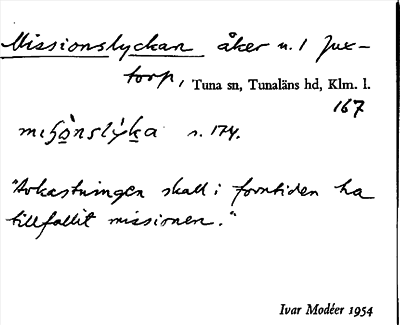 Missionslyckan åker n. 1 Jux-
torp, Tuna sn, Tunaläns hd, Klm. l.
167
s. 174.
"Avkastningen skall i forntiden ha
tillfallit missionen."
Ivar Modéer 1954